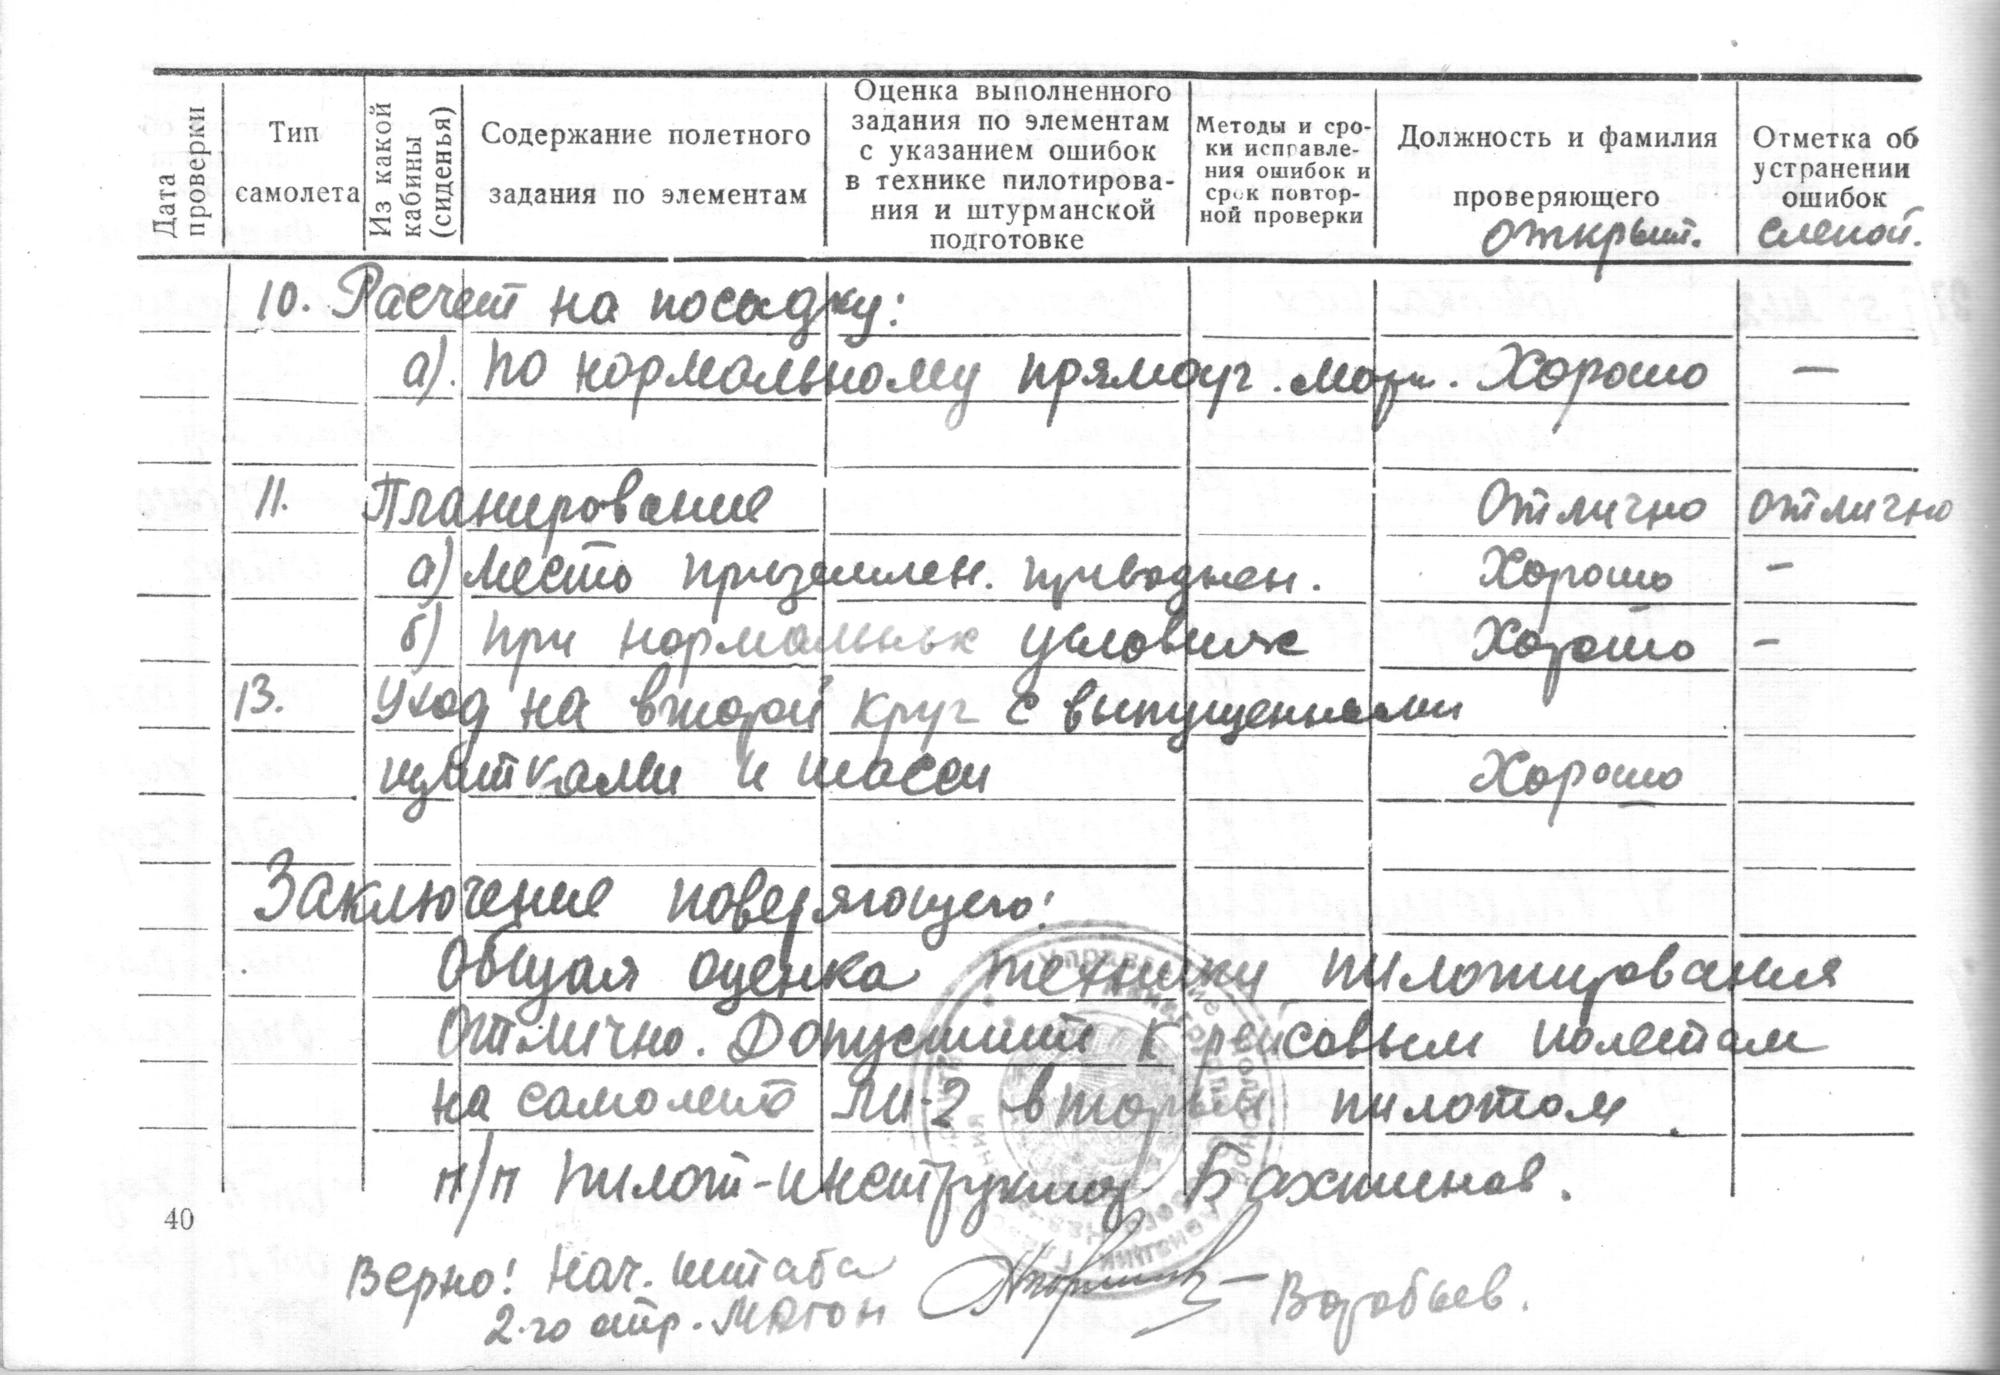 Дата проверки
Тип самолета
Из какой кабины (сиденья)
Содержание полетного задания по элементам
Оценка выполненного задания по элементам с указанием ошибок в технике пилотирова-ния и штурманской подготовке
Методы и сро-ки исправле-ния ошибок и срок повтор-ной проверки
Должность и фамилия проверяющего
Отметка об устранении ошибок
открыт. слепой.
10. Расчет на посадку:
а). по нормальному прямоуг. марш. Хорошо —
11. Планирование Отлично отлично
а) место приземлен. приводнен. Хорошо -
б) при нормальных условиях Хорошо -
13. Уход на второй круг с выпущенными
щитками и шасси Хорошо
Заключение поверяющего:
Общая оценка техники пилотирования
отлично. Допустить к рейсовым полетам
на самолете ЛИ-2 вторым пилотом
п/п пилот-инструктор Бахтинов.
40
Верно! Нач. штаба
2-го отр. МАГОН — Воробьев.